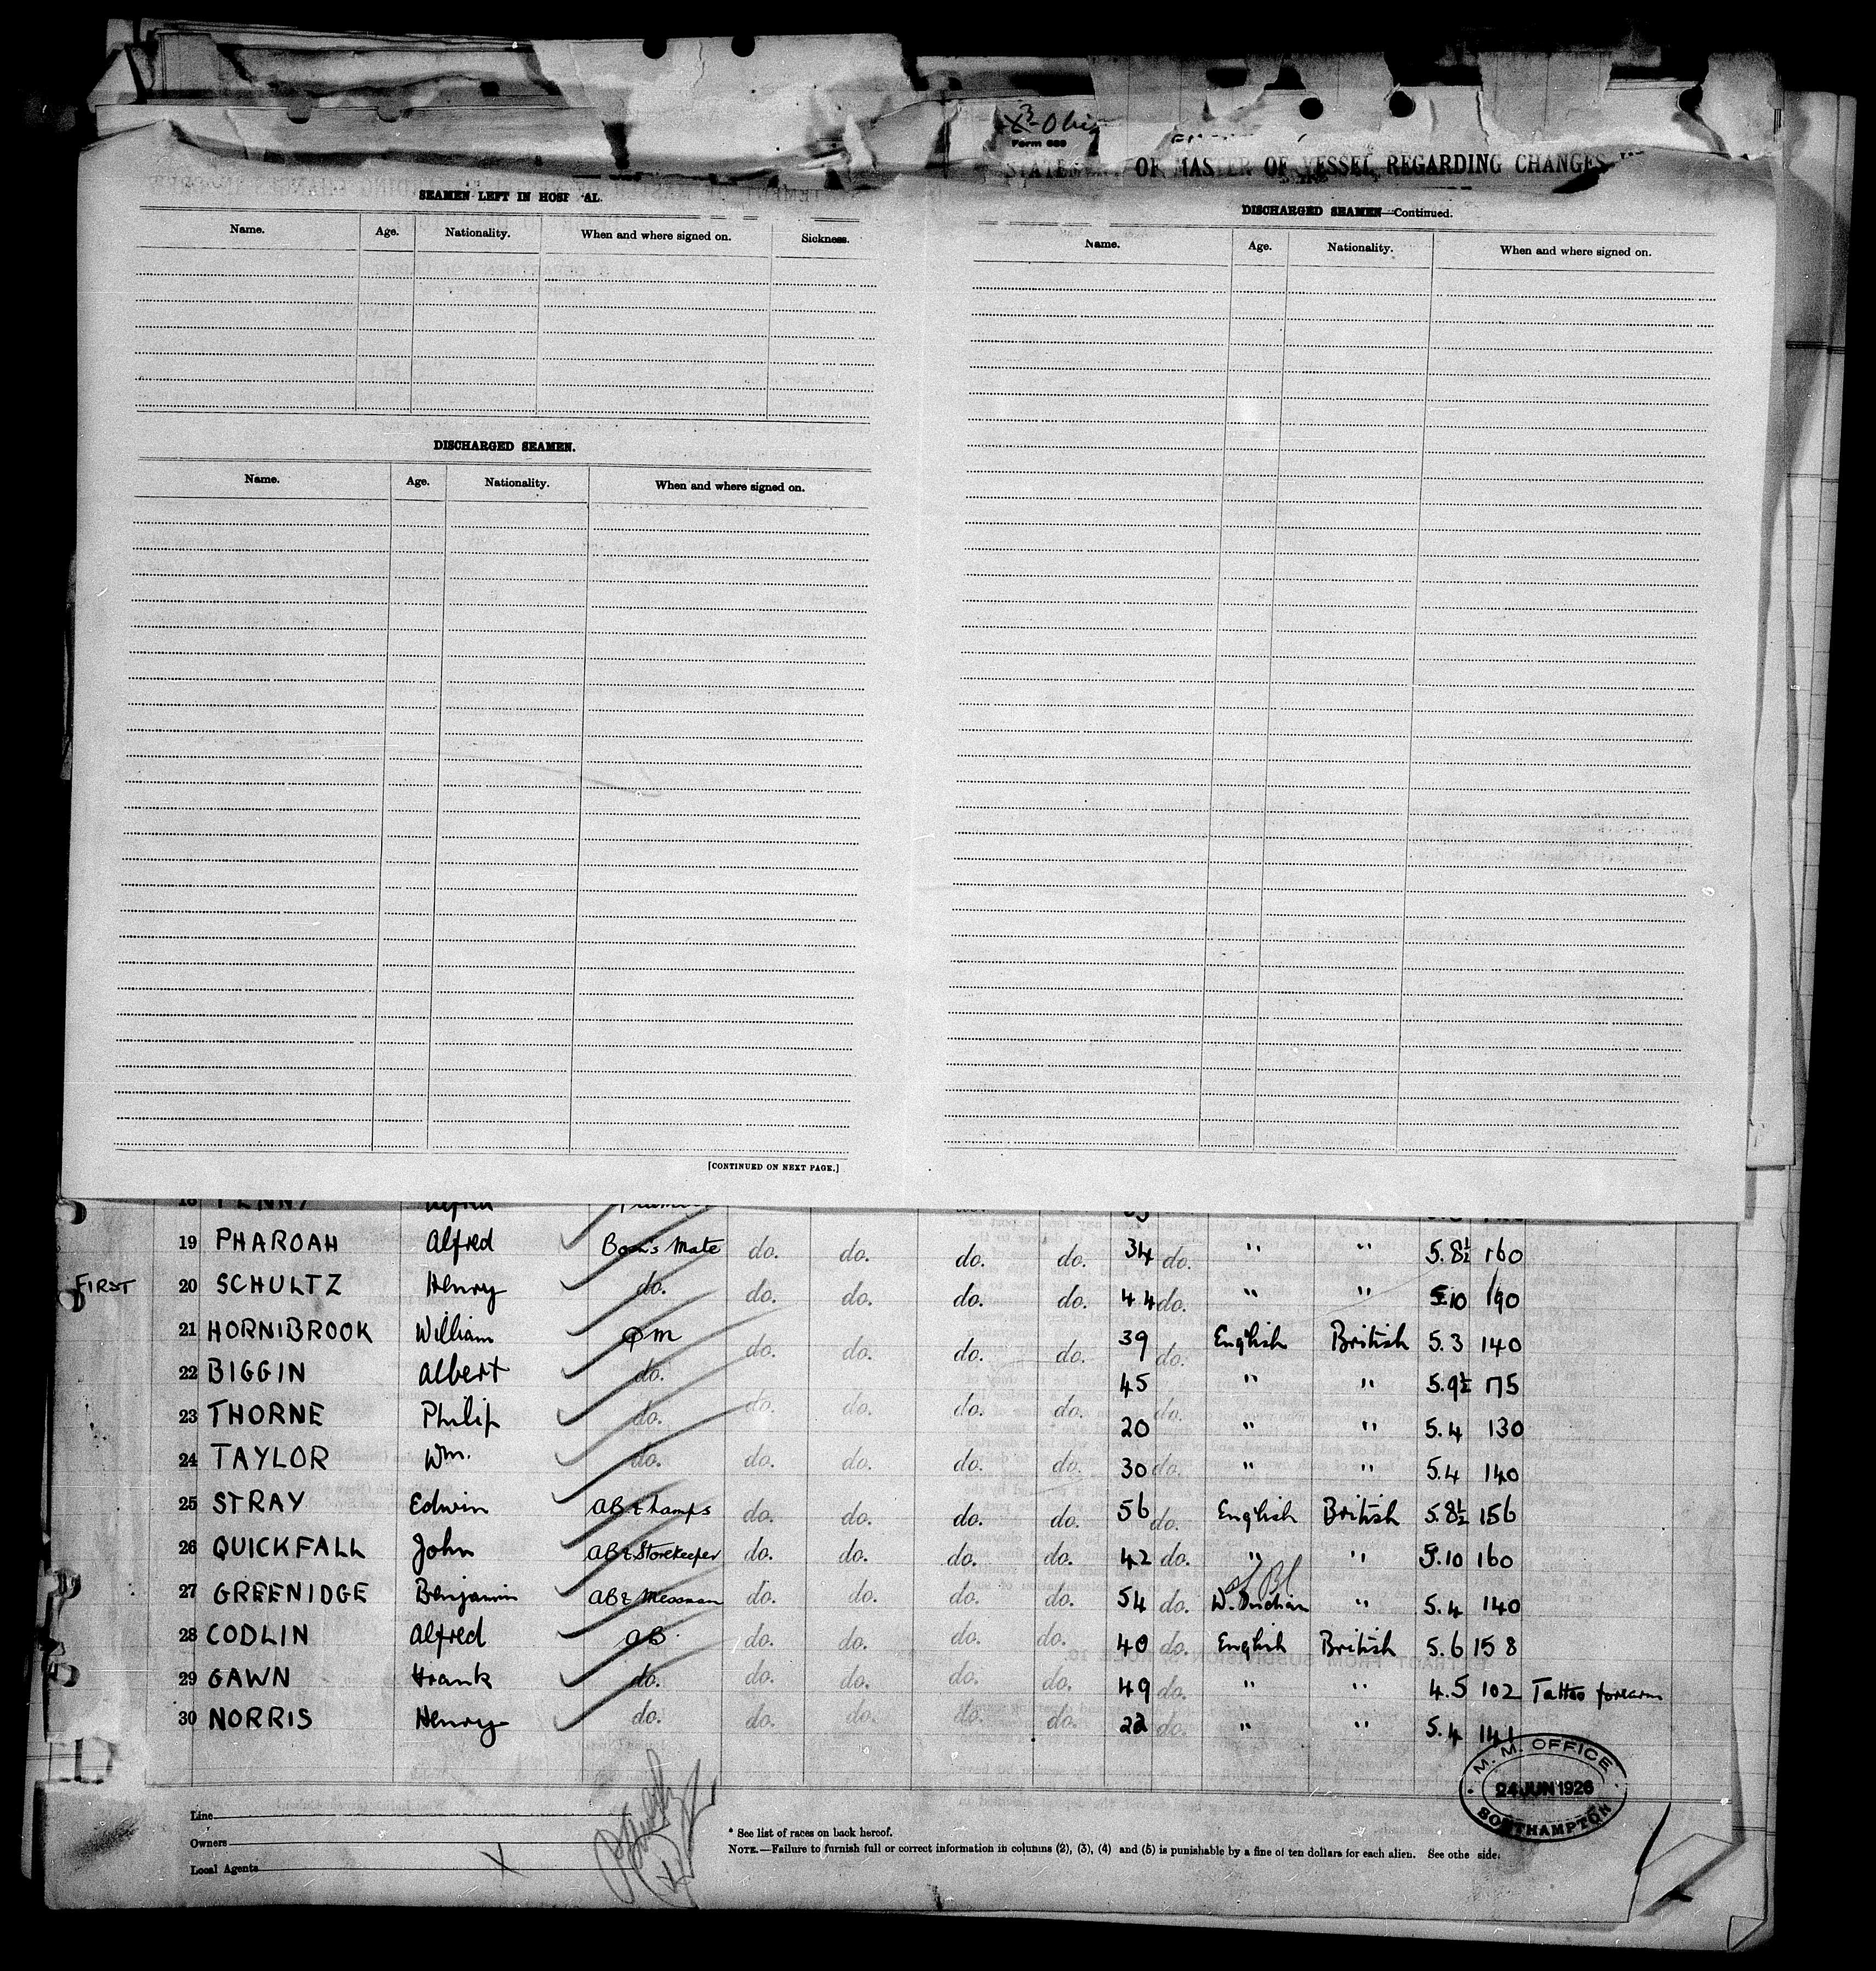 Form 689
STATEMENT OF MASTER OF VESSEL REGARDING CHANGES
SEAMEN LEFT IN HOSP AL.
Name. Age. Nationality. When and where signed on. Sickness.
DISCHARGED SEAMEN.
Name. Age. Nationality. When and where signed on.
[CONTINUED ON NEXT PAGE.]
DISCHARGED SEAMEN—Continued.
Name. Age. Nationality. When and where signed on.
18 PENNY Alfred
19 PHAROAH Alfred Bosn's Mate do. do. do. do. 34 do. " " 5.8½ 160
FIRST 20 SCHULTZ Henry do. do. do. do. do. 44 do. " " 5.10 190
21 HORNIBROOK William QM do. do. do. do. 39 do. English British 5.3 140
22 BIGGIN Albert do. 45 " " 5.9½ 175
23 THORNE Philip do. do. do. do. do. 20 do. " " 5.4 130
24 TAYLOR Wm. do. do. do. do. do. 30 do. " " 5.4 140
25 STRAY Edwin AB & Lamps do. do. do. do. 56 do. English British 5.8½ 156
26 QUICKFALL John AB & Storekeeper do. do. do. do. 42 do. " " 5.10 160
27 GREENIDGE Benjamin AB & Messman do. do. do. do. 54 do. W. Indian " 5.4 140
28 CODLIN Alfred AB do. do. do. do. 40 do. English British 5.6 158
29 GAWN Frank do. do. do. do. do. 49 do. " " 4.5 102 Tattoo forearm
30 NORRIS Henry do. do. do. do. do. 22 do. " " 5.4 141
M. M. OFFICE
24 JUN 1926
SOUTHAMPTON
Line
Owners
Local Agents
X
* See list of races on back hereof.
NOTE.—Failure to furnish full or correct information in columns (2), (3), (4) and (5) is punishable by a fine of ten dollars for each alien. See othe side.